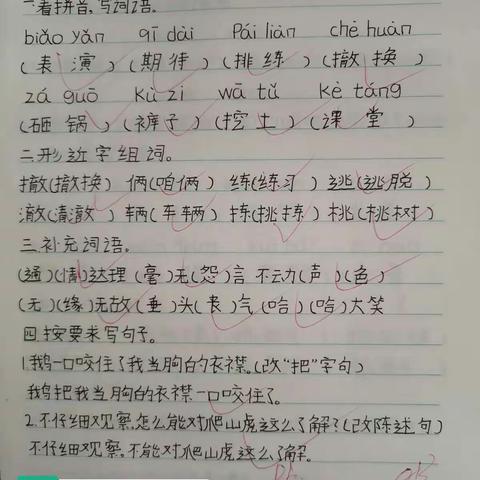 一看拼音,写词语。
biǎo yǎn qī dài Pái liàn chè huàn
(表演)(期待)(排练)(撤换)
zá guō kù zi wā tǔ kè táng
(砸锅)(裤子)(挖土)(课堂)
二.形近字组词。
撤(撤换) 俩(咱俩) 练(练习) 逃(逃脱)
澈(清澈) 辆(车辆) 拣(挑拣) 桃(桃树)
三.补充词语。
(通)(情)达理 (毫)无(怨)言 不动(声)(色)
(无)(缘)无故 (垂)头(丧)气 (哈)(哈)大笑
四.按要求写句子。
1.鹅一口咬住了我当胸的衣襟。(改"把"字句)
鹅把我当胸的衣襟一口咬住了。
2.不仔细观察,怎么能对爬山虎这么了解?(改陈述句)
不仔细观察,不能对爬山虎这么了解。